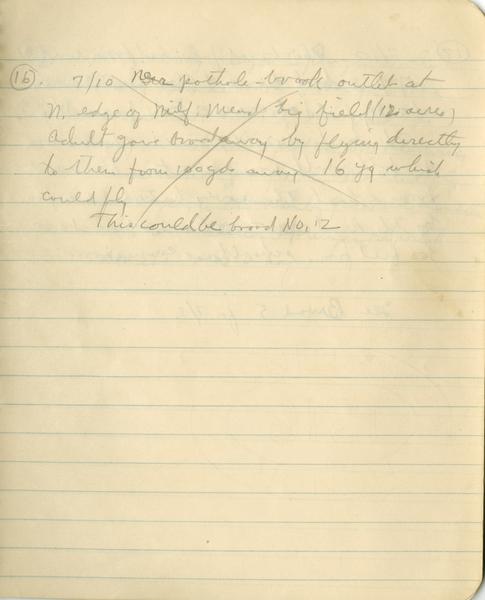 (16). 7/10 Near pothole - brook outlet at
N. edge of Milf. Mead big field (120 acres)
Adult gave brood away by flying directly
to them from 100 yds away. 16 yg which
could fly
This could be brood No. 12